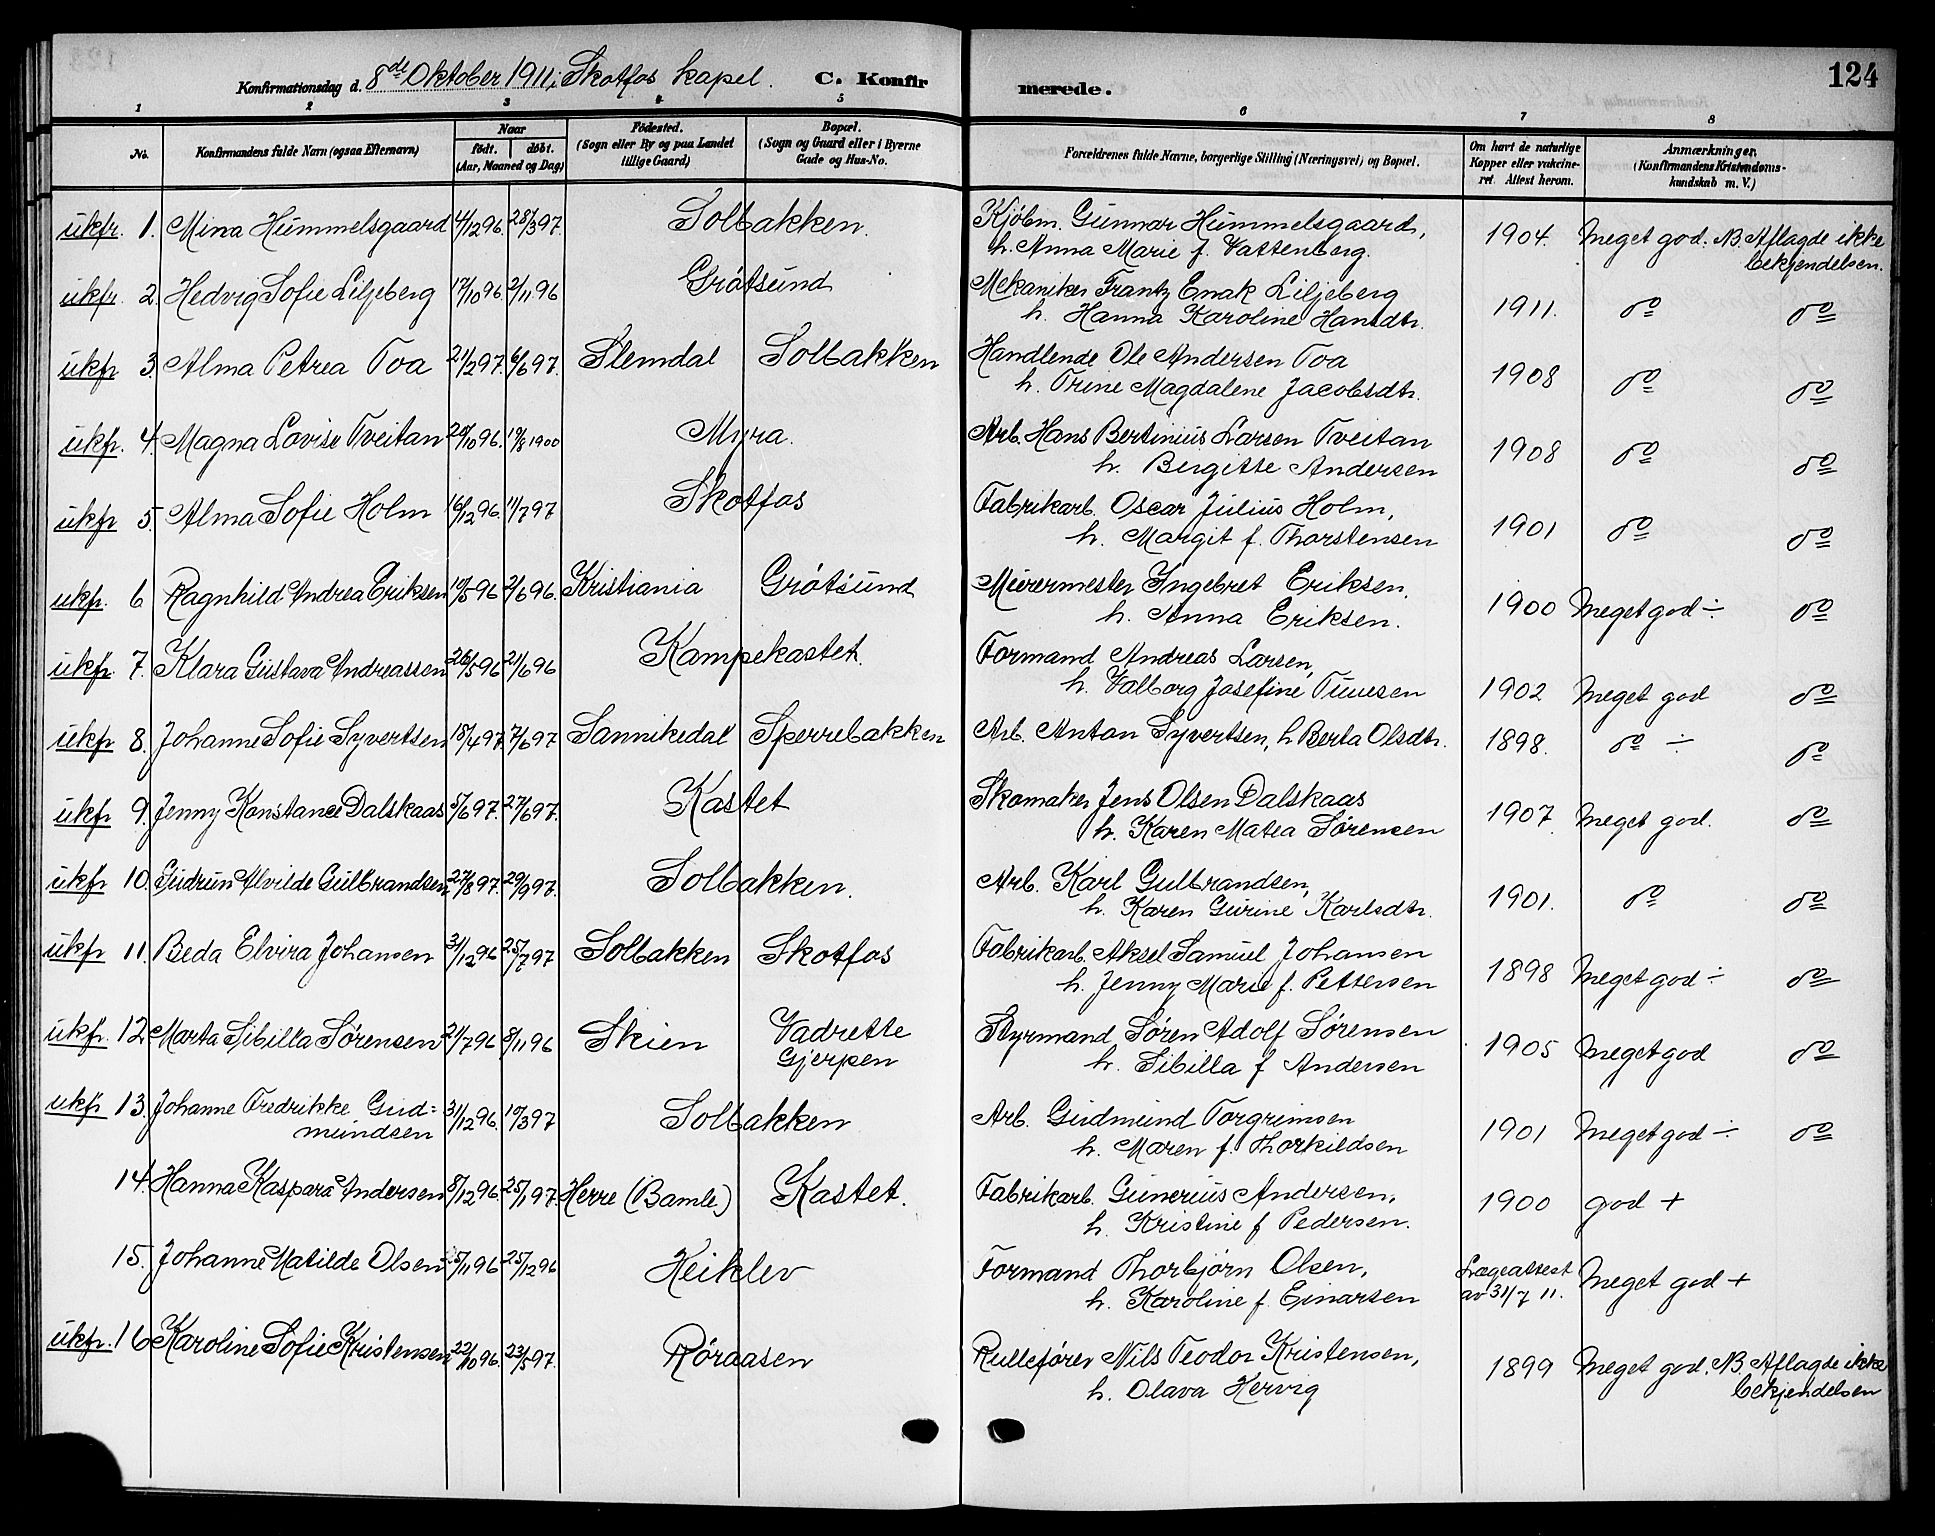 Konfirmationsdag d. 8de Oktober 1911, i Skotfos kapel. C. Konfirmerede. 124
1 2 3 4 5 6 7 8
No. Konfirmandens fulde Navn (ogsaa Efternavn) Naar födt. döbt. (Aar, Maaned og Dag) Födested. (Sogn eller By og paa Landet tillige Gaard) Bopæl. (Sogn og Gaard eller i Byerne Gade og Hus-No. Forældrenes fulde Navne, borgerlige Stilling (Næringsvei) og Bopæl. Om havt de naturlige Kopper eller vakcineret. Attest herom. Anmærkninger. (Konfirmandens Kristendomskundskab m. V.)
ukfr. 1. Mina Hummelsgaard 4/12 96. 28/3 97. Solbakken. Kjøbm. Gunnar Hummelsgaard, 1904. Meget god. NB. Aflagde ikke
h. Anna Marie f. Vattenberg. bekjendelsen.
ukfr. 2. Hedvig Sofie Liljeberg 17/10 96. 2/11 96 Grøtsund Mekaniker Frantz Enak Liljeberg 1911. do do
h. Hanna Karoline Hansdtr.
ukfr 3. Alma Petrea Toa 21/2 97. 6/6 97. Slemdal Solbakken Handlende Ole Andersen Toa 1908 do do
h. Trine Magdalene Jacobsdtr.
ukfr. 4. Magna Lovise Tveitan 20/10 96. 19/8 1900 Myra. Arb. Hans Bertinius Larsen Tveitan 1908 do do
h. Birgitte Andersen
ukfr 5. Alma Sofie Holm 16/12 96. 11/7 97 Skotfos Fabrikarb. Oscar Julius Holm, 1901 do do
h. Margit f. Thorstensen
ukfr. 6 Ragnhild Andrea Eriksen 10/5 96 2/6 96. Kristiania Grøtsund Murermester Ingebret Eriksen. 1900 Meget god ÷ do
h. Anna Eriksen.
ukfr. 7. Klara Gustava Andreassen 26/5 96 21/6 96 Kampekastet. Formand Andreas Larsen, 1902 Meget god do
h. Valborg Josefine Tuvesen
ukfr 8. Johanne Sofie Syvertsen 18/4 97. 7/6 97 Sannikedal Sperrebakken Arb. Anton Syvertsen, h Berta Olsdtr. 1898. do ÷ do
ukfr 9. Jenny Konstance Dalskaas 5/6 97. 27/6 97. Kastet Skomaker Jens Olsen Dalskaas 1907 Meget god. do
h. Karen Matea Sørensen
ukfr 10. Gudrun Alvilde Gulbrandsen 27/8 97. 29/9 97. Solbakken. Arb. Karl Gulbrandsen, 1901. do do
h. Karen Gurine Karlsdtr.
ukfr 11. Beda Elvira Johansen 31/12 96 25/7 97 Solbakken Skotfos Fabrikarb. Aksel Samuel Johansen 1898 Meget god ÷ do
h. Jenny Marie f. Pettersen
ukfr. 12 Marta Sibilla Sørensen 21/7 96 8/11 96 Skien Vadrette Gjerpen Styrmand Søren Adolf Sørensen 1905 Meget god do
h. Sibilla f Andersen
ukfr 13. Johanne Fredrikke Gudmundsen 31/12 96. 10/3 97 Solbakken Arb. Gudmund Torgrimsen 1901 Meget god ÷ do
h. Maren f. Thorkildsen
14. Hanna Kaspara Andersen 8/12 96. 25/1 97. Herre (Bamle) Kastet. Fabrikarb. Gunerius Andersen, 1900 god +
h. Kristine f Pedersen.
15. Johanne Matilde Olsen 5/11 96 25/12 96 Heiklev Formand Thorbjørn Olsen, Lægeattest av 31/7 11. Meget god +
h. Karoline f. Einarsen
ukfr. 16 Karoline Sofie Kristensen 22/10 96. 23/5 97. Røraasen Rullefører Nils Teodor Kristensen, 1899 Meget god. NB Aflagde ikke
h. Olava Hervig bekjendelsen